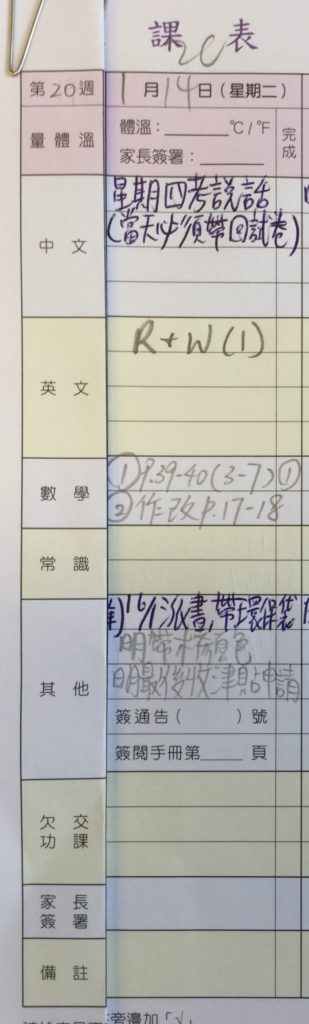 課 2C 表
第20週 1月14日(星期二)
量體溫 體溫：______ °C/°F 完成
家長簽署：______
中文 星期四考説話
(當天必須帶回試卷)
英文 R+W(1)
數學 ①P.39-40(3-7)①
②作改P.17-18
常識
其他 16/1派書,帶環保袋
明帶水顏色
明最後收津貼申請
簽通告( )號
簽閱手冊第____頁
欠交功課
家長簽署
備註
旁邊加「✓」